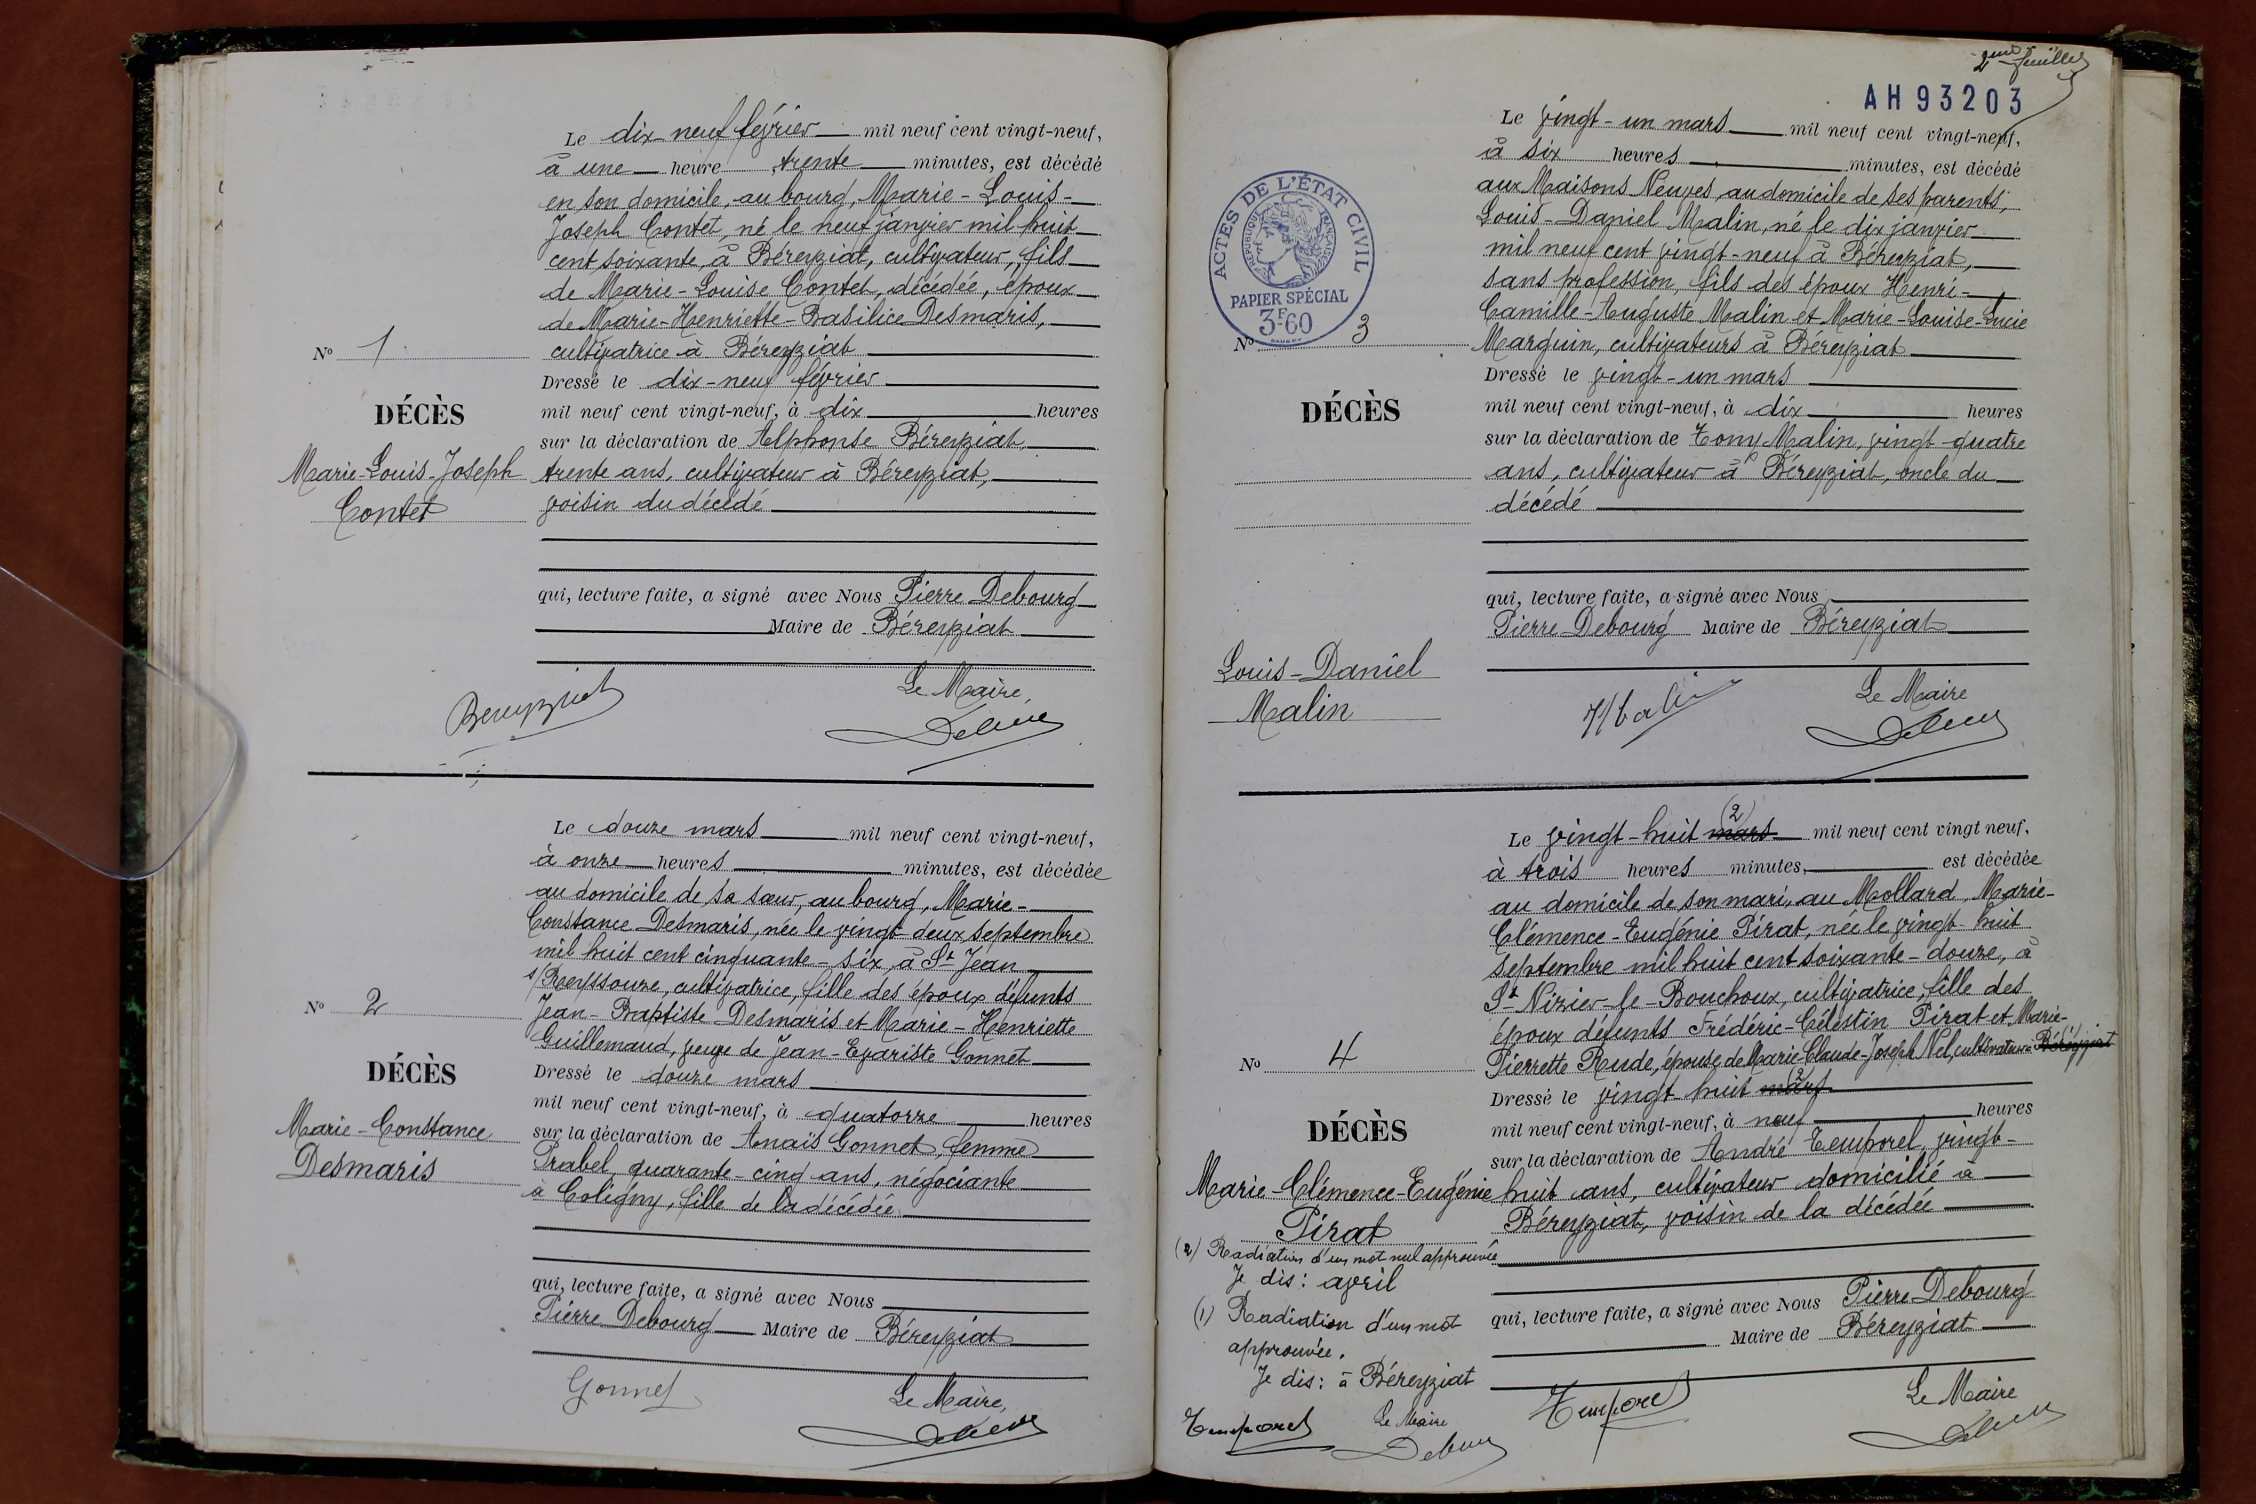 Le dix-neuf février mil neuf cent vingt-neuf,
à une heure trente minutes, est décédé
en son domicile, au bourg, Marie-Louis-
Joseph Contet, né le neuf janvier mil huit
cent soixante à Béreyziat, cultivateur, fils
de Marie-Louise Contet, décédée, époux
de Marie-Henriette-Basilice Desmaris,
cultivatrice à Béreyziat
Nº 1
Dressé le dix-neuf février
DÉCÈS
mil neuf cent vingt-neuf, à dix heures
sur la déclaration de Alphonse Béreyziat,
Marie-Louis-Joseph
Contet
trente ans, cultivateur à Béreyziat,
voisin du décédé
qui, lecture faite, a signé avec Nous Pierre Debourg
Maire de Béreyziat
Le Maire,
Bereyziat
Le douze mars mil neuf cent vingt-neuf,
à onze heures minutes, est décédée
au domicile de sa sœur, au bourg, Marie-
Constance Desmaris, née le vingt-deux septembre
mil huit cent cinquante-six, à St Jean
s/Reyssouze, cultivatrice, fille des époux défunts
Nº 2
Jean-Baptiste Desmaris et Marie-Henriette
Guillemaud, veuve de Jean-Evariste Gonnet
DÉCÈS
Dressé le douze mars
mil neuf cent vingt-neuf, à quatorze heures
Marie-Constance
Desmaris
sur la déclaration de Anaïs Gonnet, femme
Prabel, quarante-cinq ans, négociante
à Coligny, fille de la décédée
qui, lecture faite, a signé avec Nous
Pierre Debourg Maire de Béreyziat
Gonnet
Le Maire,
2eme feuillet
AH 93203
Le vingt-un mars mil neuf cent vingt-neuf,
à six heures minutes, est décédé
aux Maisons Neuves, au domicile de ses parents,
Louis-Daniel Malin, né le dix janvier
mil neuf cent vingt-neuf à Béreyziat,
sans profession, fils des époux Henri-
Camille-Auguste Malin et Marie-Louise-Lucie
Marguin, cultivateurs à Béreyziat
ACTES DE L'ÉTAT CIVIL
REPUBLIQUE FRANÇAISE
PAPIER SPÉCIAL
3F60
Nº 3
Dressé le vingt-un mars
DÉCÈS
mil neuf cent vingt-neuf, à dix heures
sur la déclaration de Tony Malin, vingt-quatre
ans, cultivateur à Béreyziat, oncle du
décédé
qui, lecture faite, a signé avec Nous
Pierre Debourg Maire de Béreyziat
Louis-Daniel
Malin
Le Maire
Le vingt-huit mars (2) mil neuf cent vingt neuf,
à trois heures minutes, est décédée
au domicile de son mari, au Mollard, Marie-
Clémence-Eugénie Pirat, née le vingt-huit
septembre mil huit cent soixante-douze, à
St Nizier-le-Bouchoux, cultivatrice, fille des
époux défunts Frédéric-Célestin Pirat et Marie-
Pierrette Rude, épouse de Marie-Claude-Joseph Vel, cultivateur à Béreyziat
Nº 4
Dressé le vingt-huit mars (2)
DÉCÈS
mil neuf cent vingt-neuf, à neuf heures
sur la déclaration de André Temporel, vingt-
Marie-Clémence-Eugénie
Pirat
huit ans, cultivateur domicilié à
Béreyziat, voisin de la décédée
(2) Radiation d'un mot nul approuvée
Je dis: avril
(1) Radiation d'un mot
approuvée.
Je dis: à Béreyziat
Temporel
Le Maire
qui, lecture faite, a signé avec Nous Pierre Debourg
Maire de Béreyziat
Temporel
Le Maire